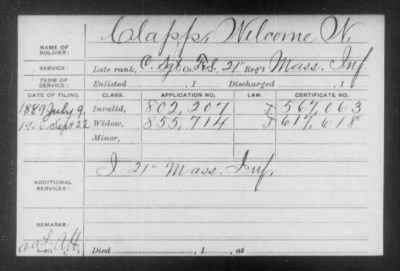 NAME OF SOLDIER: Clapp, Welcome W.
SERVICE: Late rank, C. Sgt. Co. F.S., 21" Reg't Mass. Inf.
TERM OF SERVICE: Enlisted , 1 Discharged , 1
DATE OF FILING. CLASS. APPLICATION NO. LAW. CERTIFICATE NO.
1889 July 9. Invalid, 802,207 J 567,063
Sept 22 Widow, 855,714 J 617,618
Minor,
I 21" Mass. Inf.
ADDITIONAL SERVICES:
REMARKS:
Died , 1 , at